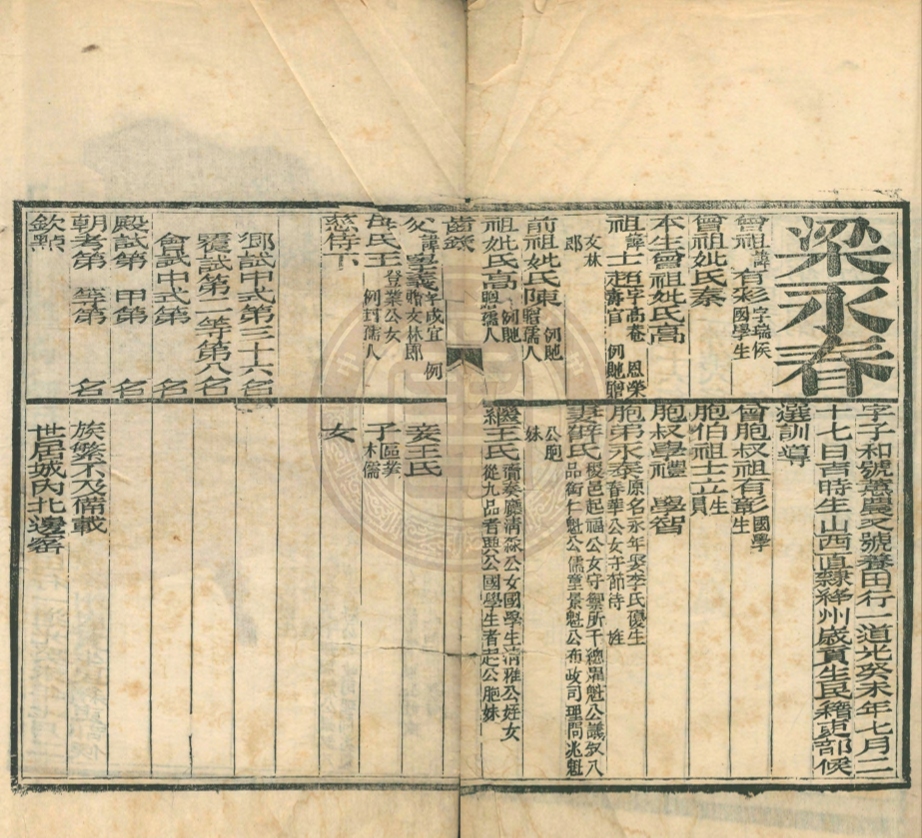 梁永春
字子和號蕙農又號養田行一道光癸未年七月二
十七日吉時生山西直隸絳州歲貢生民籍吏部候
選訓導
曾祖諱有彩字瑞侯國學生
曾祖妣氏秦
本生曾祖妣氏高
祖諱士超字高菴 恩榮壽官 例貤贈
文林郎
前祖妣氏陳 例貤贈孺人
祖妣氏高 例貤贈孺人
齒錄
父諱學義字成宜 例贈文林郎
母氏王登業公女 例封孺人
慈侍下
鄉試中式第三十六名
覆試第二等第八名
會試中式第 名
殿試第 甲第 名
朝考第 等第 名
欽點
曾胞叔祖有彰國學生
胞伯祖士立生員
胞叔學禮 學智
胞弟永泰原名永年娶李氏優生春華公女守節待 旌
妻薛氏稷邑起福公女守禦所千總鼎魁公議叙八品銜仁魁公儒童景魁公布政司理問兆魁
公胞妹
繼王氏衛奏廳清公女國學生清雅公姪女從九品者公國學生者起公胞妹
妾王氏
子
女
族繁不及備載
世居城內北邊窰